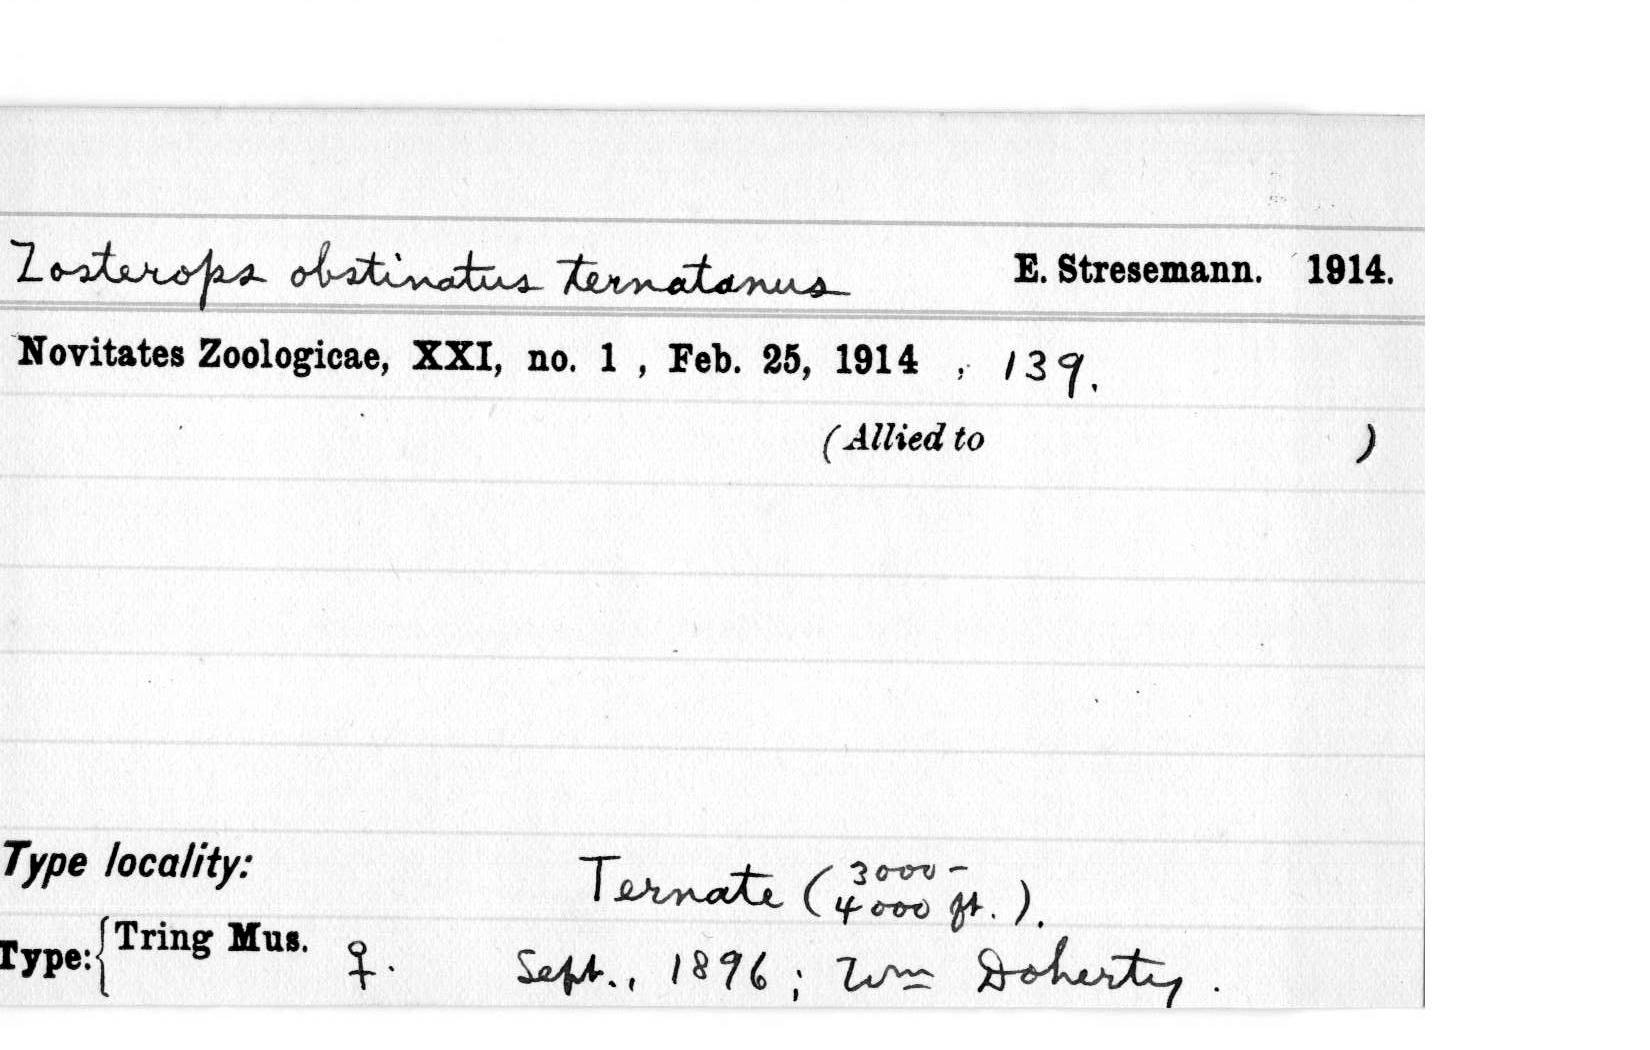 Zosterops obstinatus ternatanus E. Stresemann. 1914.
Novitates Zoologicae, XXI, no. 1 , Feb. 25, 1914 , 139.
(Allied to )
Type locality: Ternate (3000-
4000 ft.).
Type: { Tring Mus. ♀. Sept., 1896; Wm Doherty.